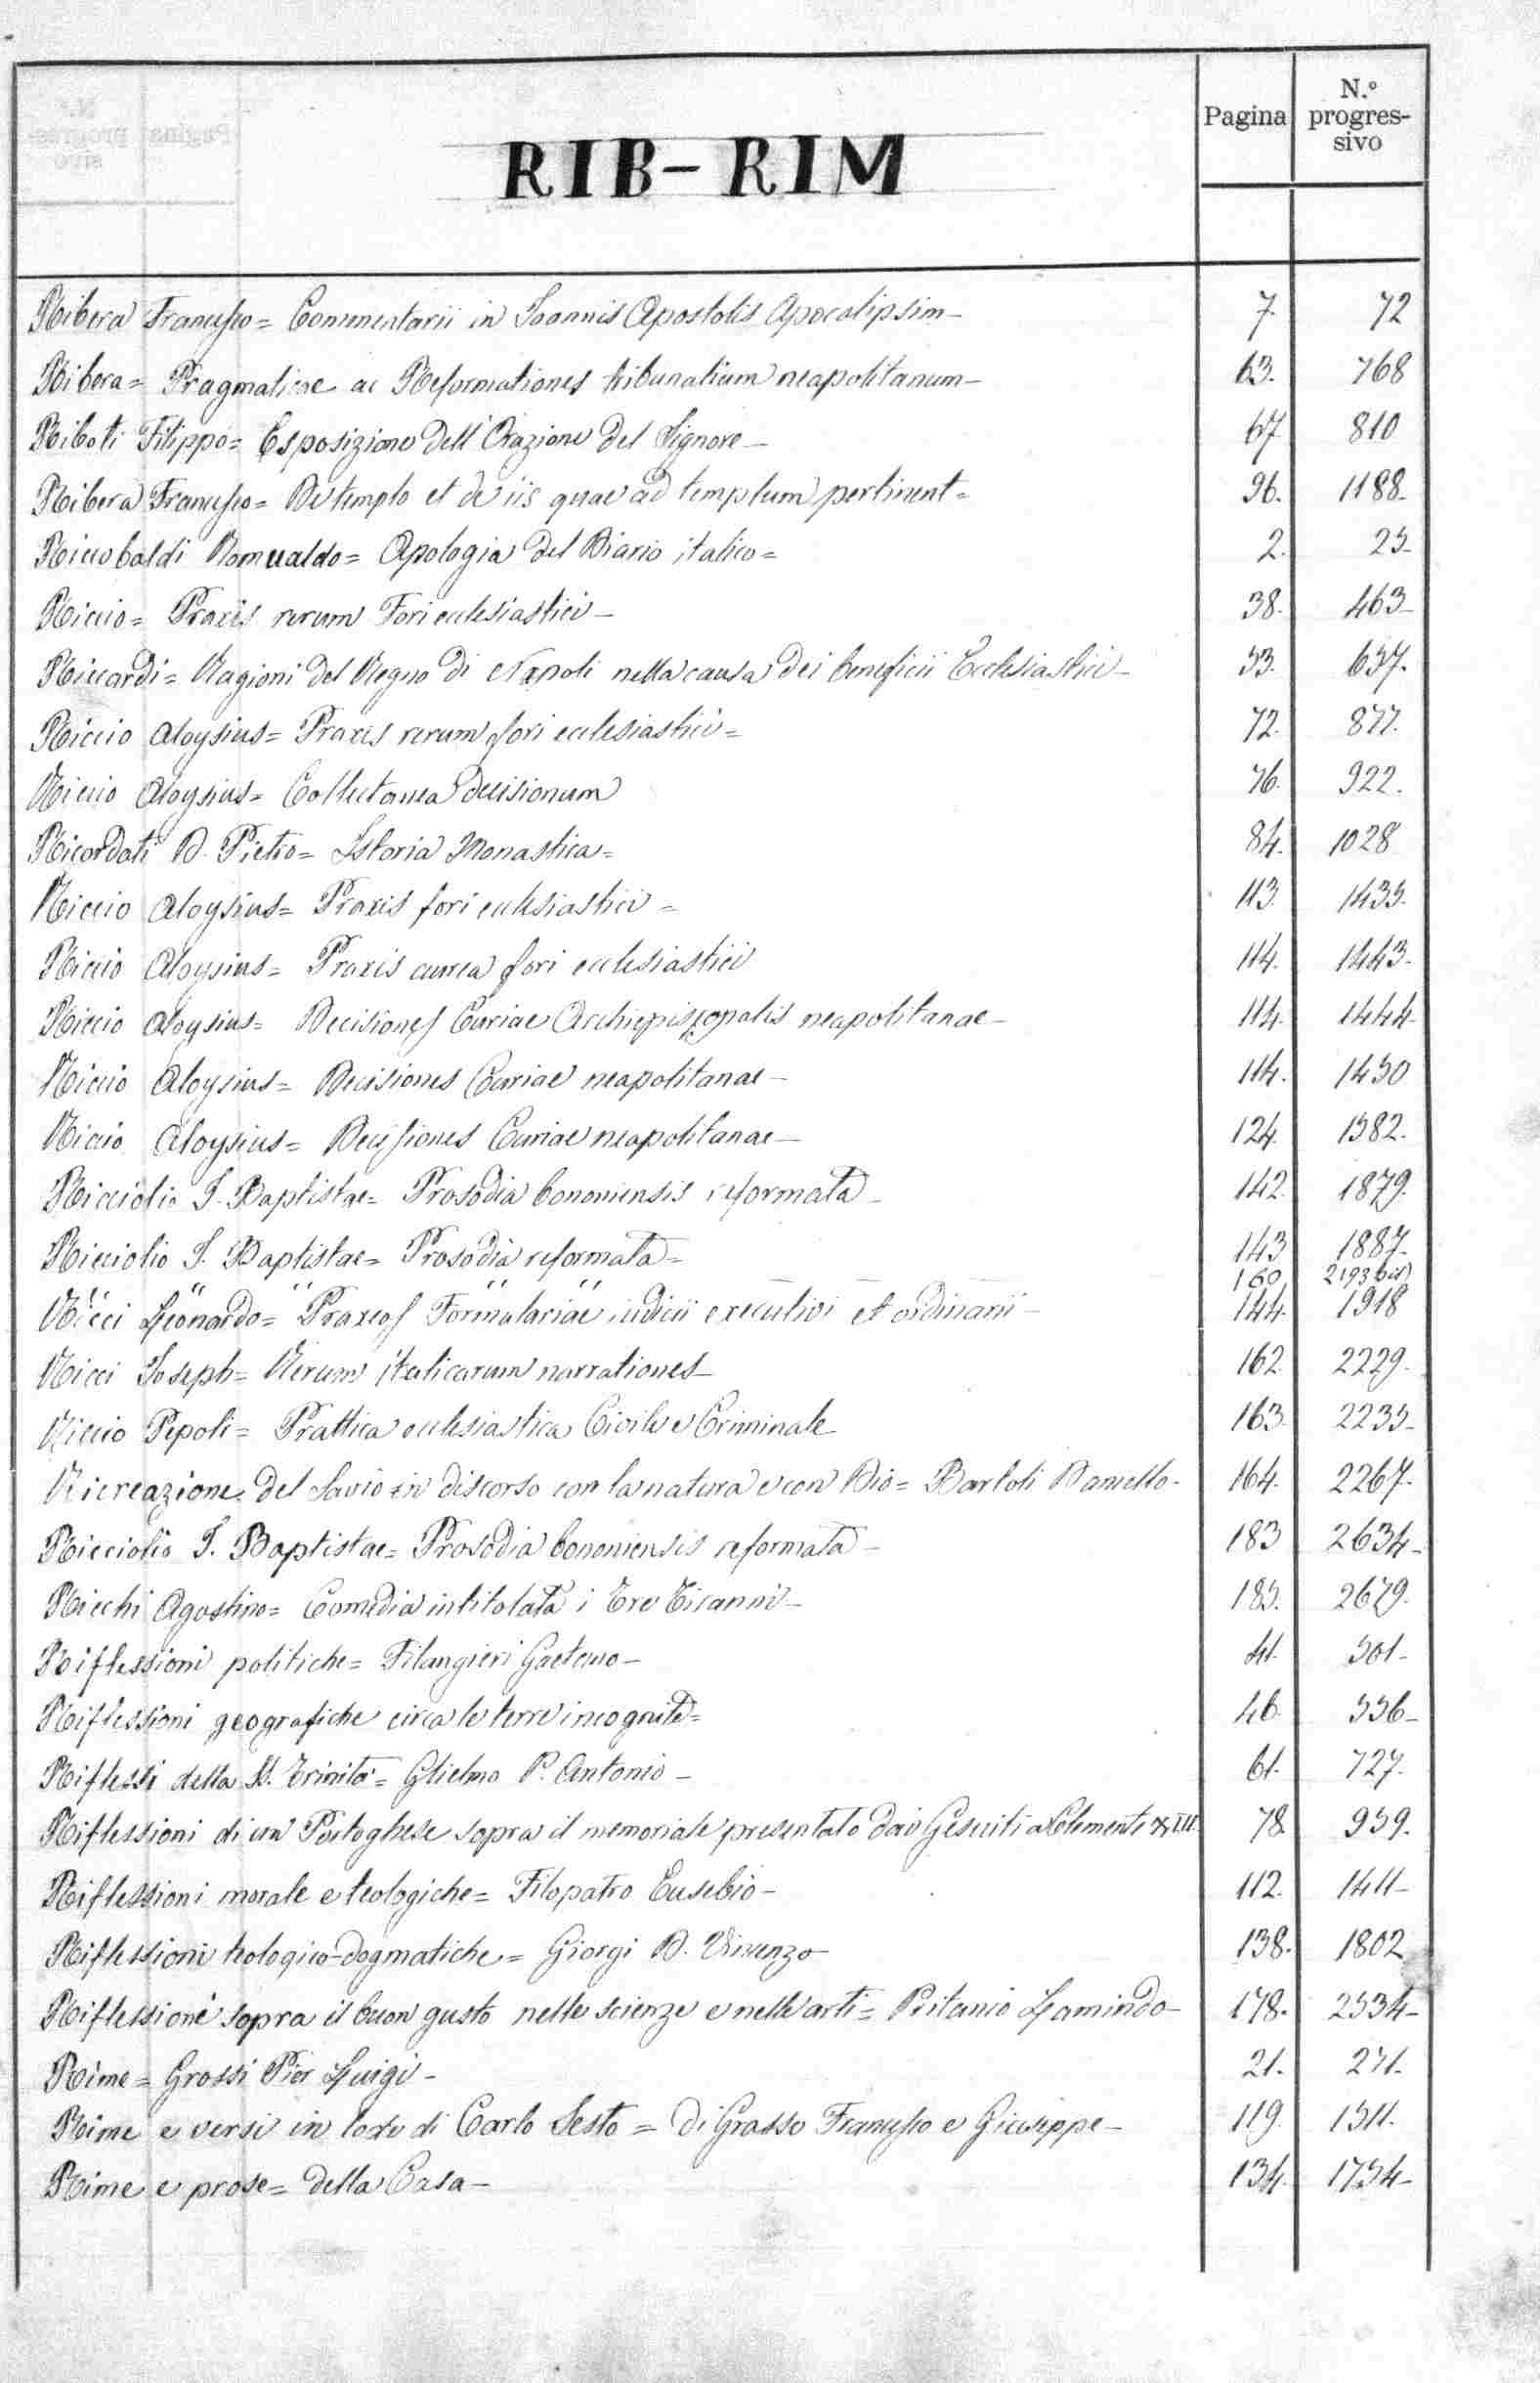 Pagina N.º progres-sivo
RIB-RIM
Ribera Francesco= Commentarii in Joannis Apostolis Apocalipsim- 7. 72
Ribera= Pragmaticae ac Reformationes tribunalium neapolitanum- 63. 768
Riboti Filippo= Esposizione dell'Orazione del Signore- 67 810
Ribera Francesco= De templo et de iis quae ad templum pertinent= 96. 1188.
Riccobaldi Romualdo= Apologia del Diario italico= 2. 25-
Riccio= Praxis rerum Fori ecclesiastici- 38. 463-
Riccardi= Ragioni del Regno di Napoli nella causa dei beneficii Ecclesiastici- 53. 657.
Riccio Aloysius= Praxis rerum fori ecclesiastici= 72. 877.
Riccio Aloysius= Collectanea decisionum 76. 922.
Ricordati D. Pietro= Istoria Monastica= 84. 1028
Riccio Aloysius= Praxis fori ecclesiastici= 113. 1435.
Riccio Aloysius= Praxis aurea fori ecclesiastici 114. 1443.
Riccio Aloysius= Decisiones Curiae Archiepiscopalis neapolitanae- 114. 1444.
Riccio Aloysius= Decisiones Curiae neapolitanae- 114. 1450
Riccio Aloysius= Decisiones Curiae neapolitanae- 124. 1582.
Ricciolio J. Baptistae= Prosodia bononiensis reformata- 142. 1879.
Ricciolio J. Baptistae= Prosodia reformata= 143 1887-
" " " " 160 2193 bis
Ricci Leonardo= Praxeos Formulariae iudicii executivi et ordinarii- 144. 1918
Ricci Joseph= Rerum italicarum narrationes- 162 2229.
Riccio Pepoli= Prattica ecclesiastica Civile e Criminale 163. 2235-
Ricreazione del Savio in discorso con la natura e con Dio= Bartoli Daniello- 164. 2267.
Ricciolio J. Baptistae= Prosodia bononiensis reformata- 183 2634-
Ricchi Agostino= Comedia intitolata i Tre Tiranni- 185. 2679.
Riflessioni politiche= Filangieri Gaetano- 41. 501-
Riflessioni geografiche circa le terre incognite= 46. 556-
Riflessi della SS. Trinità= Glielmo P. Antonio- 61. 727.
Riflessioni di un Portoghese sopra il memoriale presentato dai Gesuiti a Clemente XIII. 78. 959.
Riflessioni morale e teologiche= Filopatro Eusebio- 112. 1411-
Riflessioni teologico-dogmatiche= Giorgi D. Vincenzo- 138. 1802
Riflessione sopra il buon gusto nelle scienze e nelle arti= Pritanio Lamindo- 178. 2554-
Rime= Grossi Pier Luigi- 21. 271.
Rime e versi in lode di Carlo Sesto= di Grasso Francesco e Giuseppe- 119. 1511.
Rime e prose= della Casa- 134. 1754-